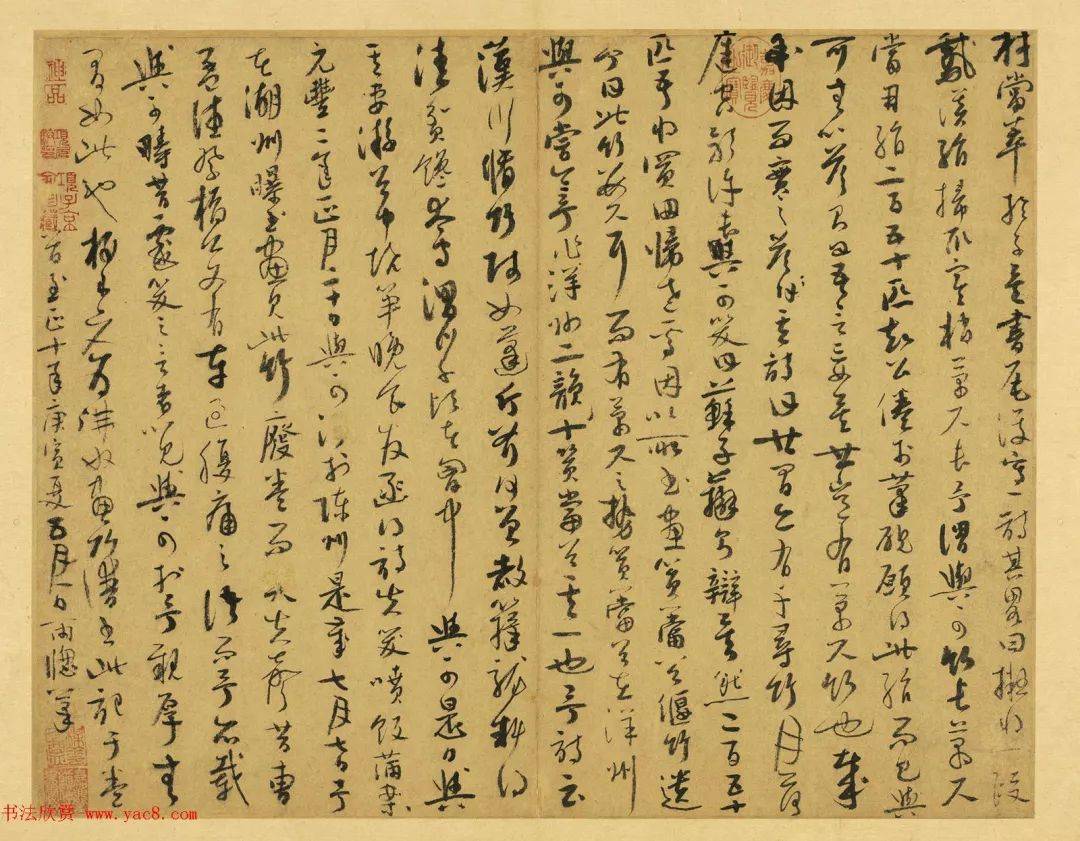 材當萃於子矣書尾復寫一詩其畧曰擬將一段
鵝溪絹掃取寒梢萬尺長予謂與可竹長萬尺
當用絹二百五十匹知公倦於筆硯願得此絹而已與
可無以答則曰吾言妄矣世豈有萬尺竹也哉
余因而實之答其詩曰世間亦有千尋竹月落
庭空影許長與可笑曰蘇子辯則辯矣然二百五十
匹吾將買田歸老焉因以所畫篔簹谷偃竹遺
予曰此竹數尺耳而有萬尺之勢篔簹谷在洋州
與可嘗令予作洋州三十詠篔簹谷其一也予詩云
漢川脩竹賤如蓬斤斧何曾赦籜龍料得
清貧饞太守渭川千畝在胸中與可是日與
其妻游谷中燒筍晚食發函得詩失笑噴飯滿案
元豐二年正月二十日與可沒於陳州是歲七月七日予
在湖州曝書畫見此竹廢卷而哭失聲昔曹
孟德祭橋公文有車過腹痛之語而予亦載
與可疇昔戲笑之言者以見與可於予親厚無
間如此也梅道人為佛奴畫竹譜書此記于卷
首至正十年庚寅夏五月一日雨窗筆
項子京
书法欣赏 www.yac8.com